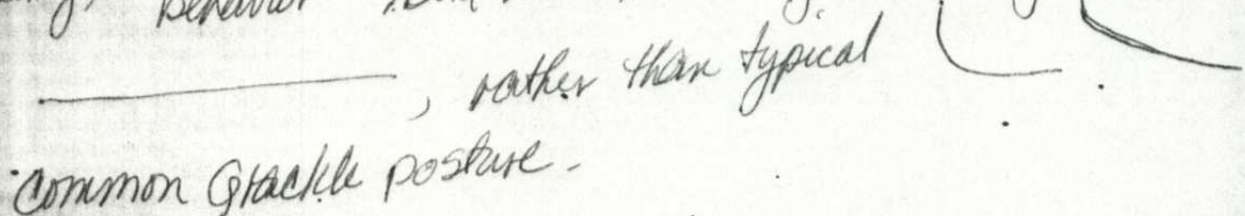 behavior
, rather than typical
Common Grackle posture.